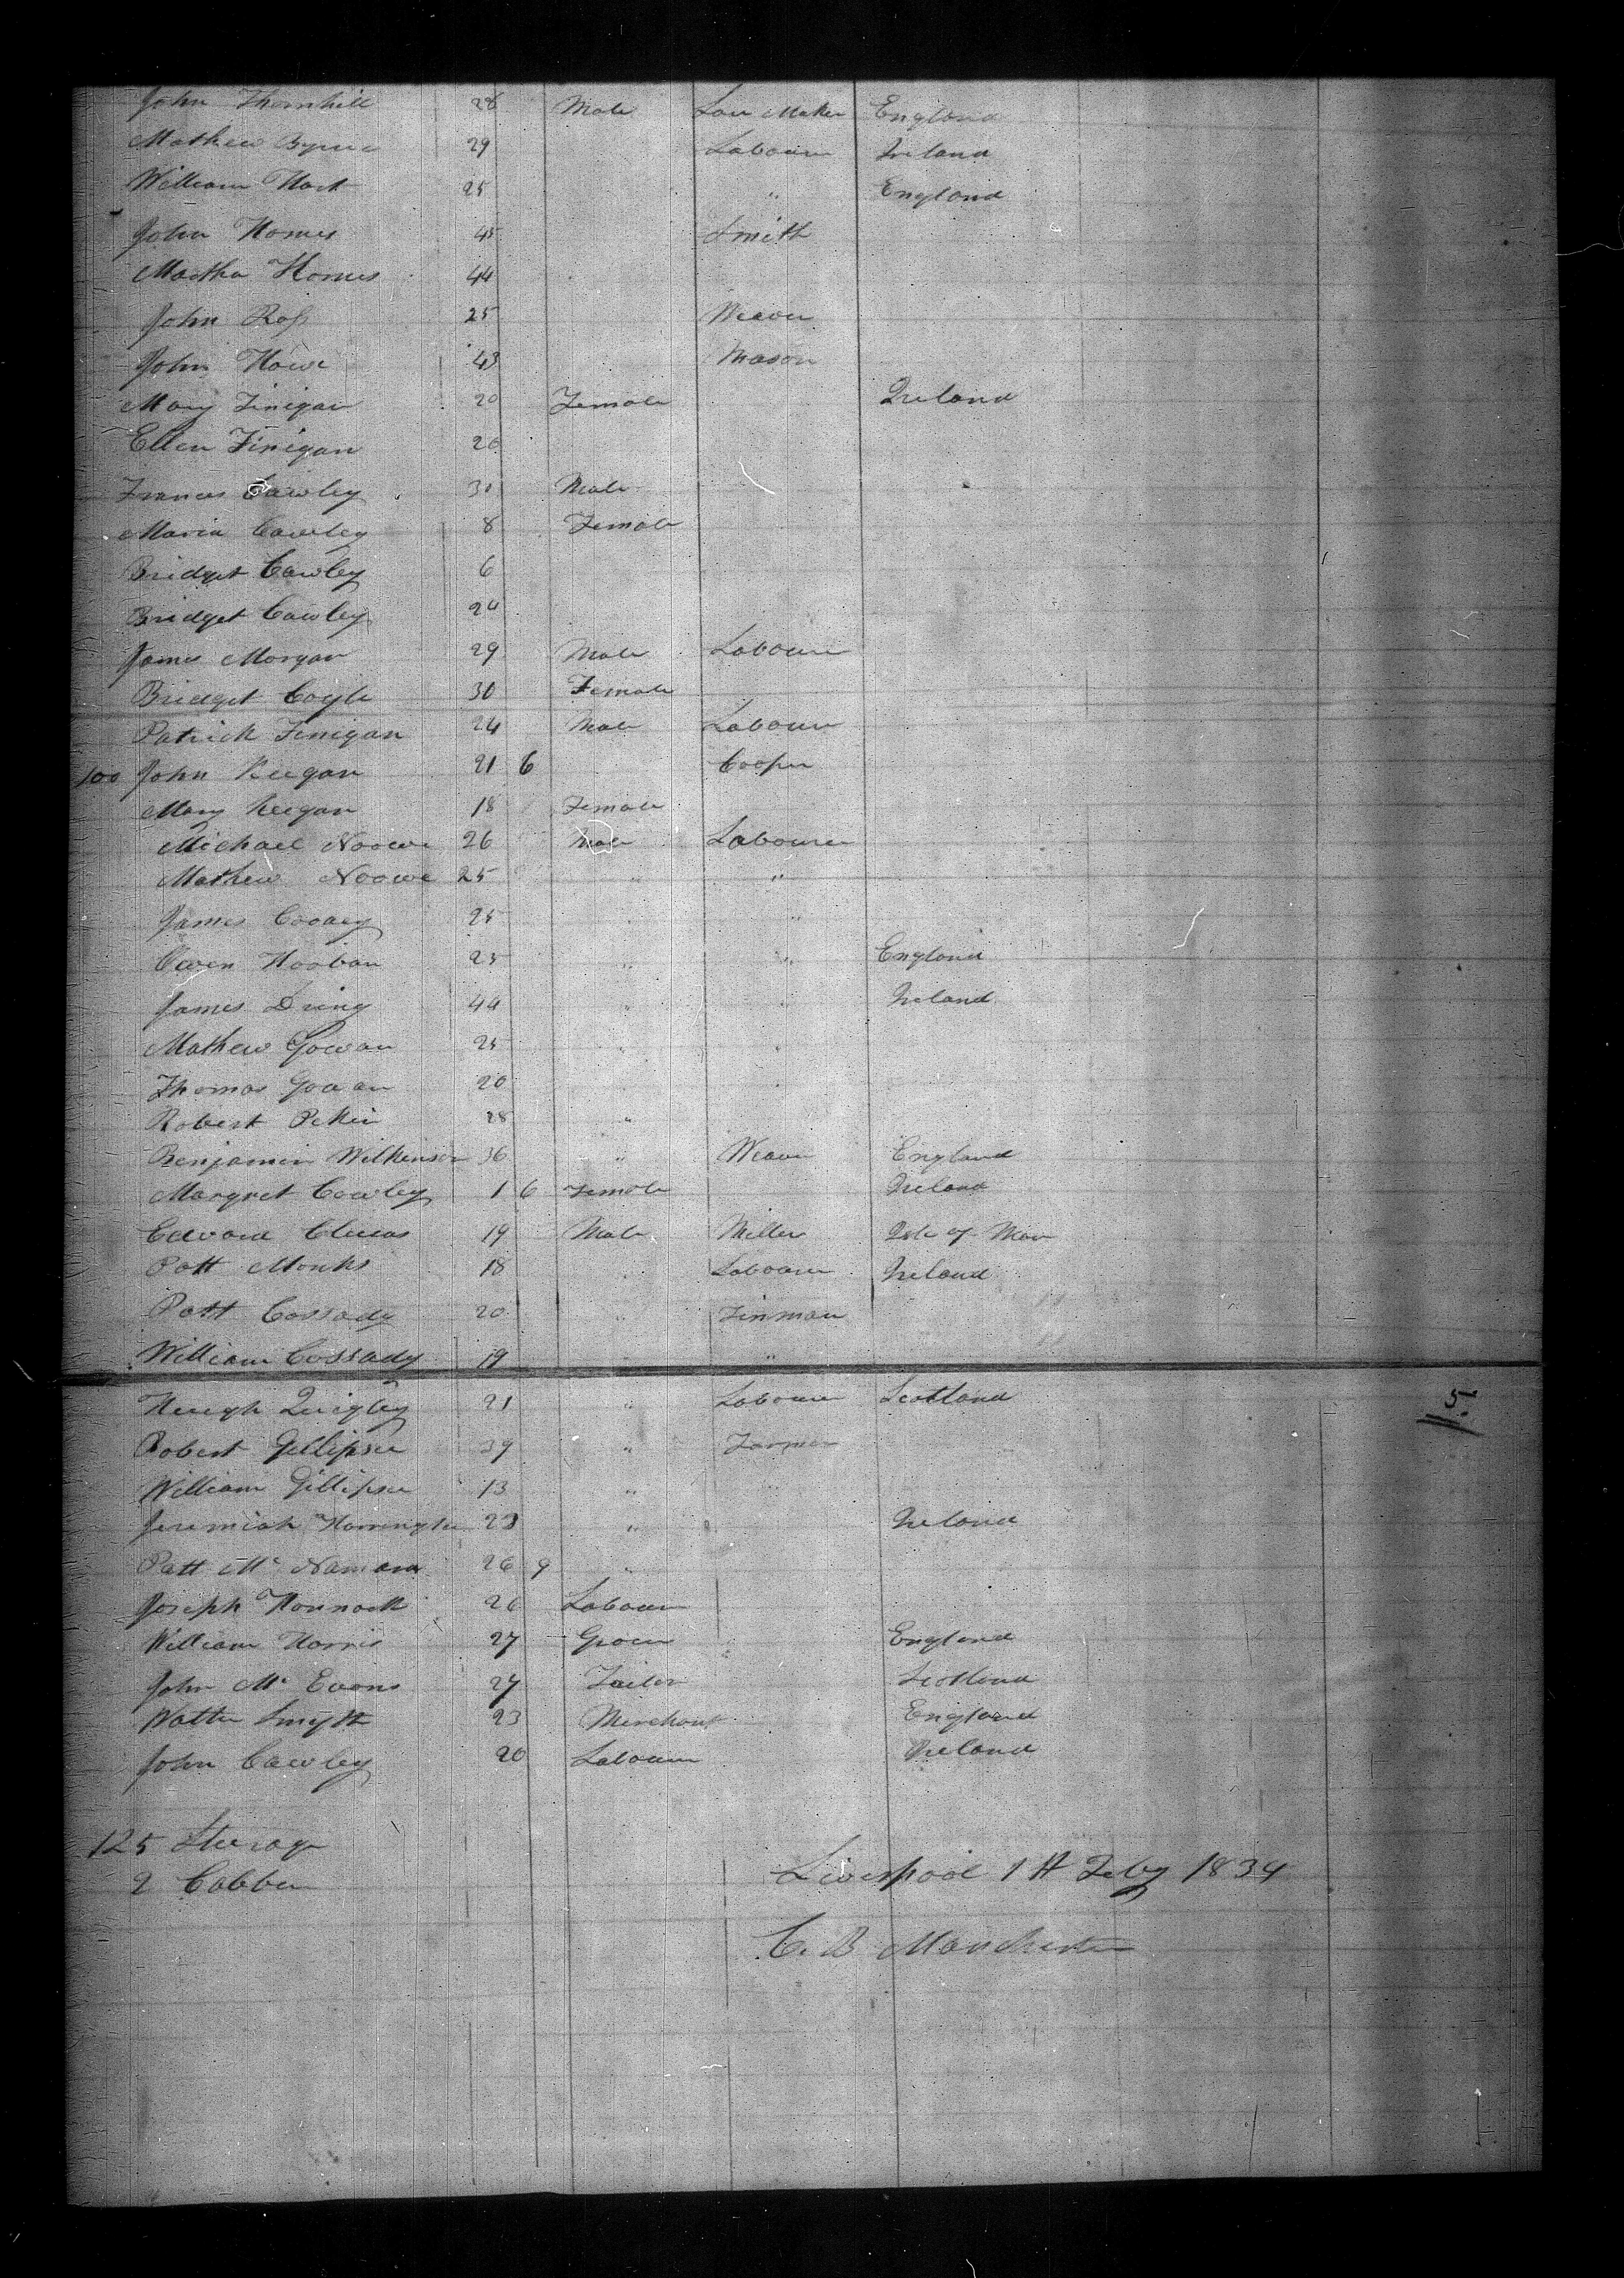 John Thornhill 28 Male Maker England
Mathew Byrne 29 Labourer Ireland
William Hart 25 " England
John Homes 45 Smith
Martha Homes 44
John Ross 25 Weaver
John Howe 43 Mason
Mary Finigan 20 Female Ireland
Ellen Finigan 20
Frances Cawley 30 Male
Maria Cawley 8 Female
Bridget Cawley 6
Bridget Cawley 24
James Morgan 29 Male Labourer
Bridget Coyle 30 Female
Patrick Finigan 24 Male Labourer
100 John Keegan 21 6 Cooper
Mary Keegan 18 Female
Michael Noowe 26 Male Labourer
Mathew Noowe 25 " "
James 25 " "
Owen Hooban 25 " " England
James Dring 44 " " Ireland
Mathew Gowan 25 " "
Thomas Gowan 20 "
Robert 28 "
Benjamin Wilkinson 36 " Weaver England
Margret Cowley 1 6 Female Ireland
Edward Clucas 19 Male Miller Isle of Man
Patt Monks 18 " Labourer Ireland
Patt Cassady 20 " Tinman
William Cassady 19 "
Heugh Quigley 21 " Labourer Scotland
5
Robert Gillipsee 39 " Farmer
William Gillipsee 13 "
Jeremiah Harrington 23 " Ireland
Patt Mc Namara 26 9 "
Joseph 26 Labourer
William Harris 27 Grocer England
John Mc Evons 27 Tailor Scotland
Walter Smyth 23 Merchant England
John Cawley 20 Labourer Ireland
125 Steerage
2 Cabben
Liverpool 1st Feby 1834
C. B Manchester